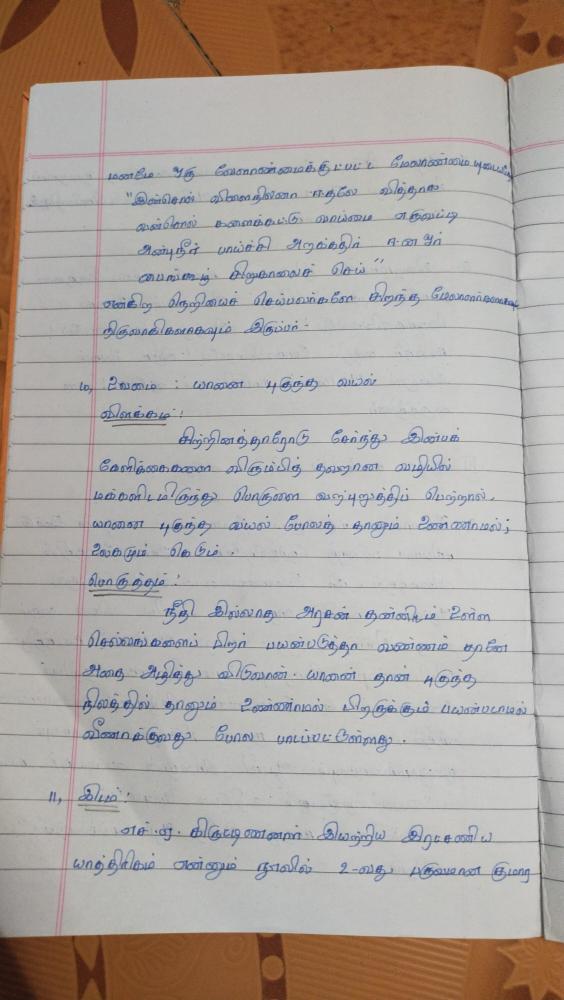 மனமே ஆகு வேளாண்மைக்குட்பட்ட மேலாண்மையுடையது
"இன்சொல் விளைநிலனா ஈதலே வித்தாக
வன்சொல் களைக்கட்டு வாய்மை எருவட்டி
அன்புநீர் பாய்ச்சி அறக்கதிர் ஈனஓர்
பைங்கூழ் சிறுகாலைச் செய்"
என்கிற நெறியைச் செய்பவர்களே சிறந்த மேலாளர்களாகவும்
நிருவாகிகளாகவும் இருப்பர்.
10, உவமை : யானை புகுந்த வயல்
விளக்கம் :
சிற்றினத்தாரோடு சேர்ந்து இன்பக்
கேளிக்கைகளை விரும்பித் தவறான வழியில்
மக்களிடமிருந்து பொருளை வற்புறுத்திப் பெற்றால்,
யானை புகுந்த வயல் போலத் தானும் உண்ணாமல்;
உலகமும் கெடும்.
பொருத்தம் :
நீதி இல்லாத அரசன் தன்னிடம் உள்ள
செல்வங்களைப் பிறர் பயன்படுத்தா வண்ணம் தானே
அதை அழித்து விடுவான். யானை தான் புகுந்த
நிலத்தில் தானும் உண்ணாமல் பிறருக்கும் பயன்படாமல்
வீணாக்குவது போல பாடப்பட்டுள்ளது.
11, இடம் :
எச்.ஏ. கிருட்டிணனார் இயற்றிய இரட்சணிய
யாத்திரிகம் என்னும் நூலில் 2-வது பருவமான குமார